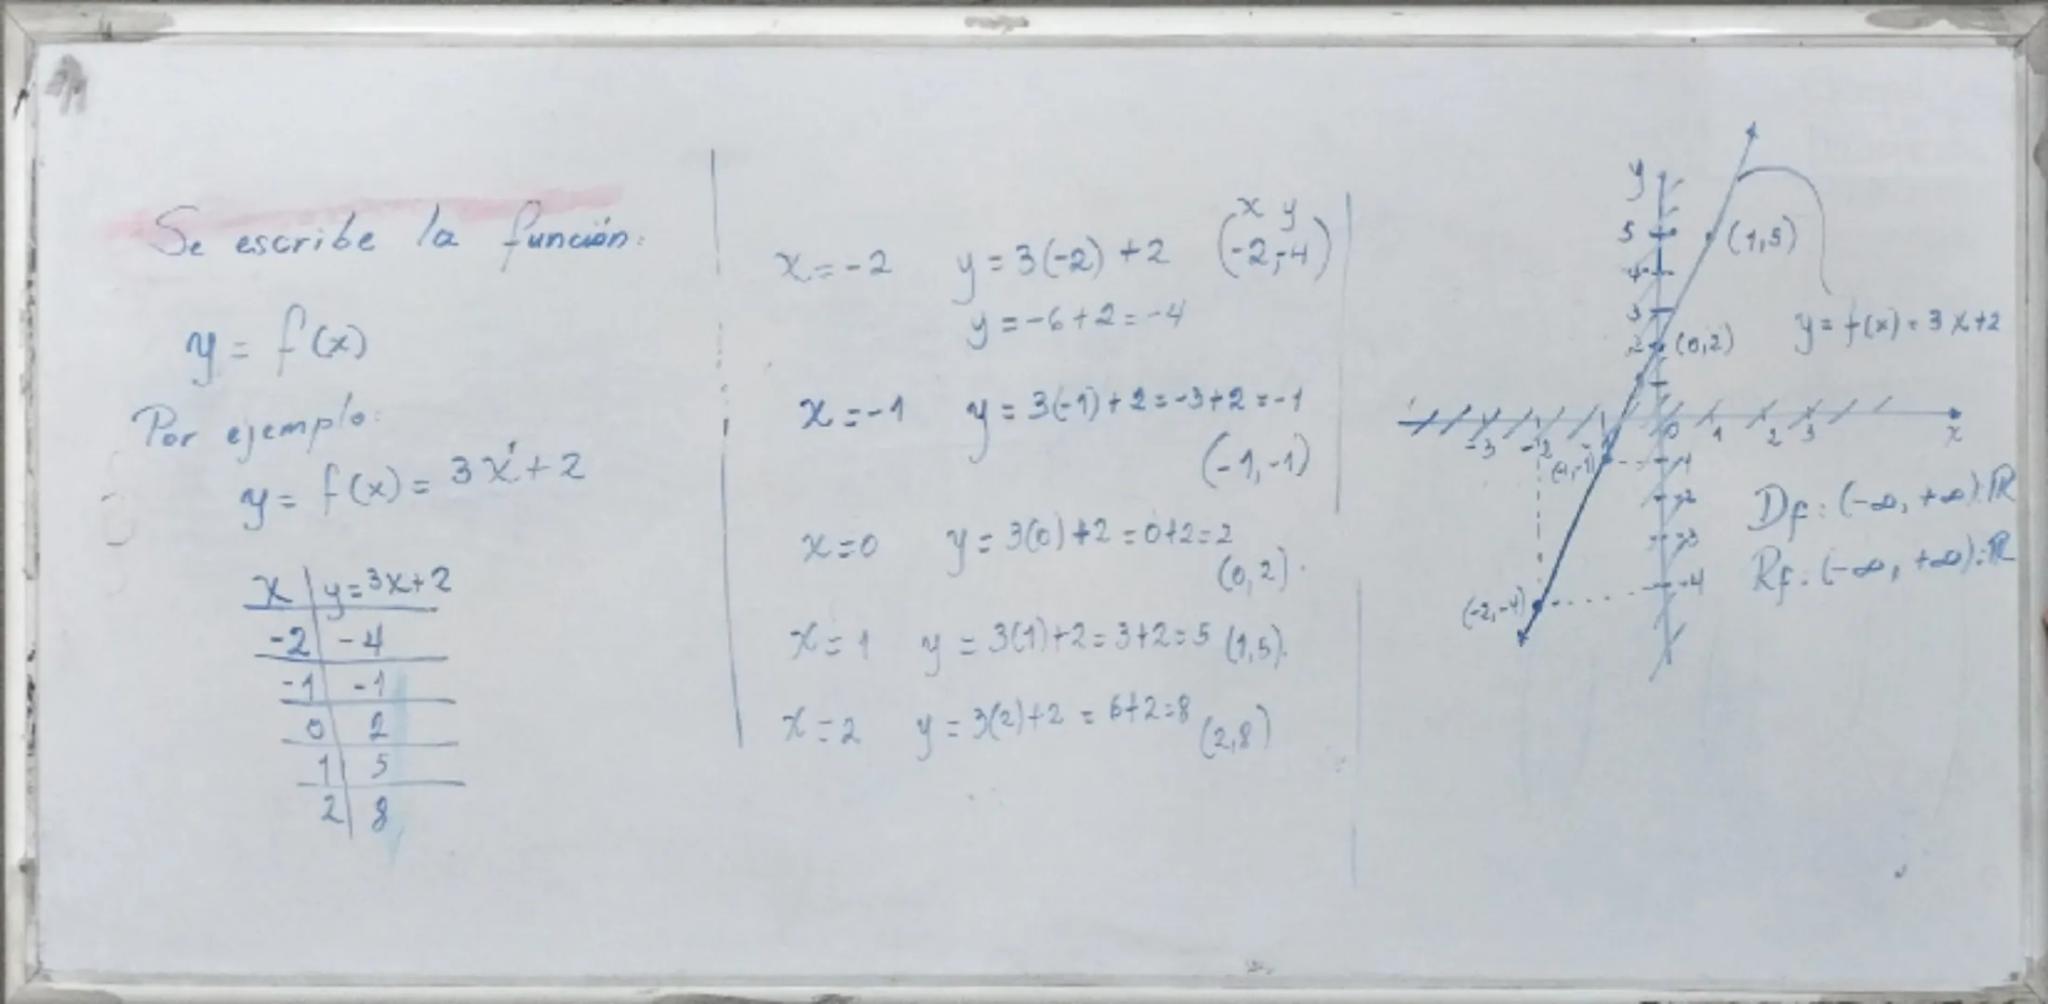 Se escribe la función:
y = f(x)
Por ejemplo:
y = f(x) = 3x¹+2
x | y=3x+2
-2 | -4
-1 | -1
0 | 2
1 | 5
2 | 8
x y
x=-2 y=3(-2)+2 (-2,-4)
y=-6+2=-4
x=-1 y=3(-1)+2=-3+2=-1
(-1,-1)
x=0 y=3(0)+2=0+2=2
(0,2).
x=1 y=3(1)+2=3+2=5 (1,5).
x=2 y=3(2)+2=6+2=8
(2,8)
y
5 (1,5)
4
3 y=f(x)=3x+2
2 (0,2)
-3 -2 0 1 2 3 x
(-1,-1) -1
-2
-3
-4
(-2,-4)
Df: (-∞, +∞):ℝ
Rf: (-∞, +∞):ℝ